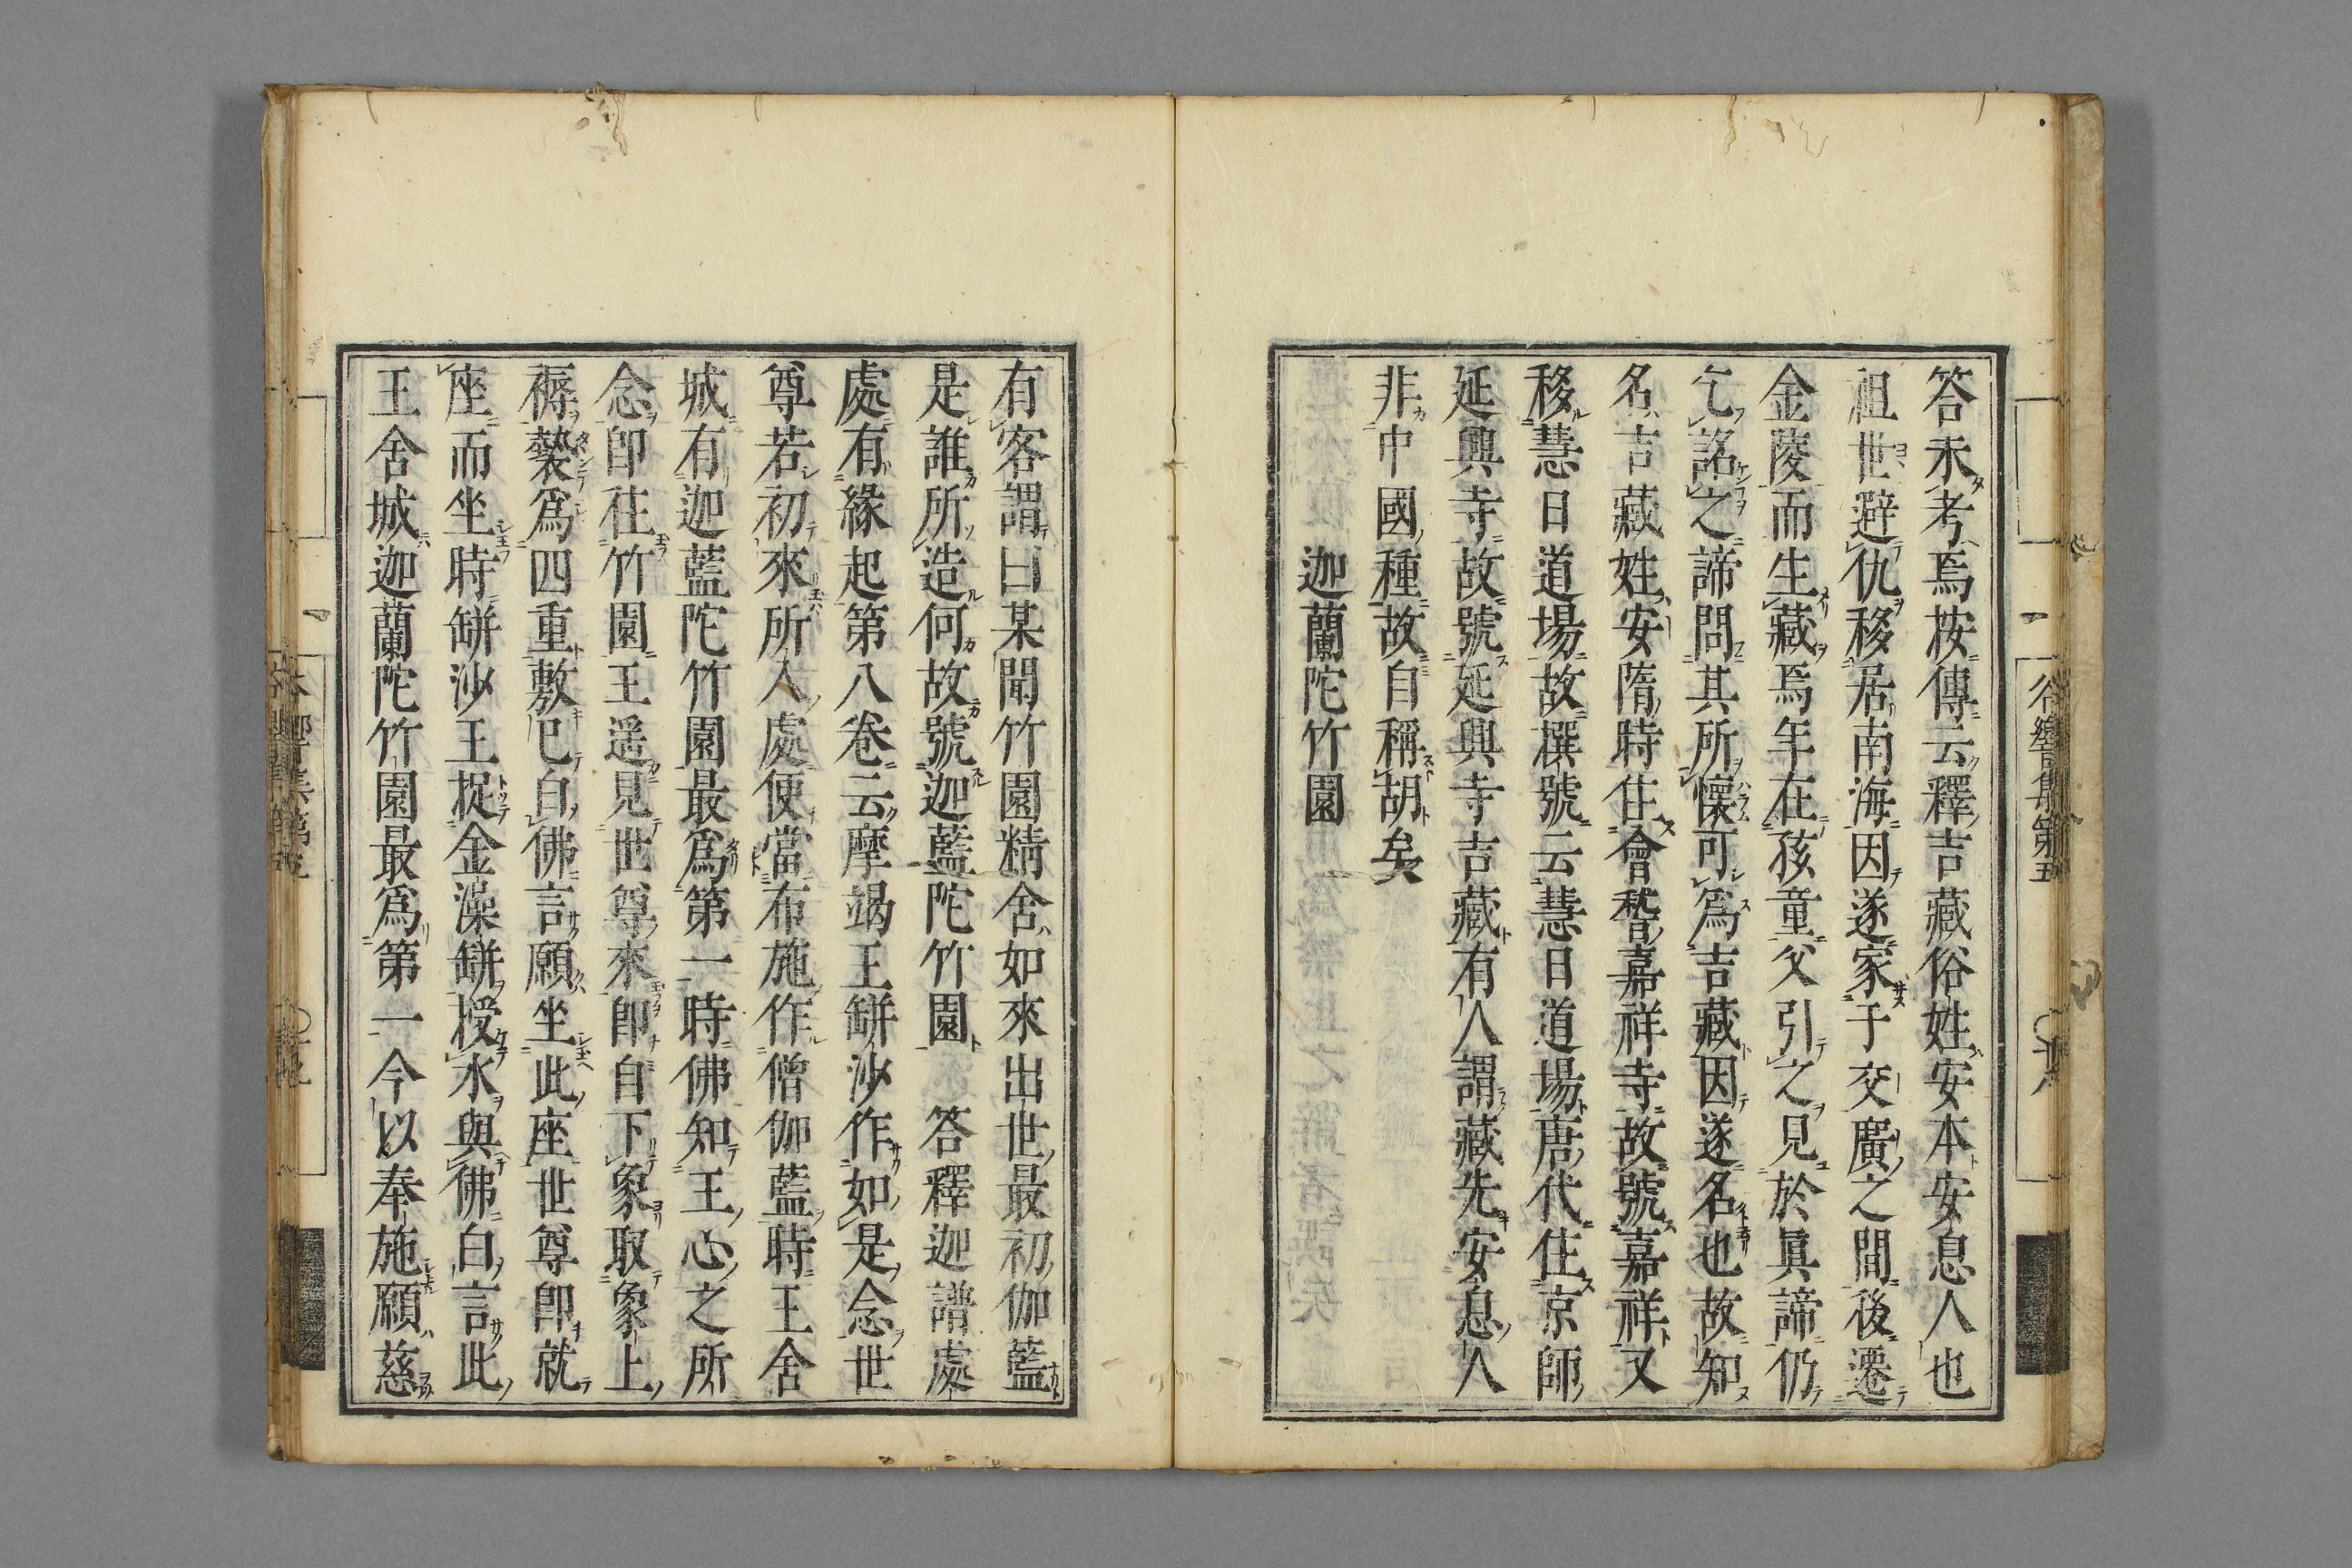 答未考焉按傳云釋吉藏俗姓安本安息人也
祖世避仇移居南海因遂家于交廣之間後遷
金陵而生藏焉年在孩童父引之見於眞諦仍
乞詺之諦問其所懷可爲吉藏因遂名也故知
名吉藏姓安隋時住會稽嘉祥寺故號嘉祥又
移慧日道場故撰號云慧日道場唐代住京師
延興寺故號延興寺吉藏有人謂藏先安息人
非中國種故自稱胡矣
迦蘭陀竹園
有客謂曰某聞竹園精舍如來出世最初伽藍
是誰所造何故號迦藍陀竹園 答釋迦譜處
處有緣起第八卷云摩竭王缾沙作如是念世
尊若初來所入處便當布施作僧伽藍時王舍
城有迦藍陀竹園最爲第一時佛知王心之所
念卽往竹園王遥見世尊來卽自下象取象上
褥褺爲四重敷已白佛言願坐此座世尊卽就
座而坐時缾沙王捉金澡缾授水與佛白言此
王舍城迦蘭陀竹園最爲第一今以奉施願慈
谷響集第五